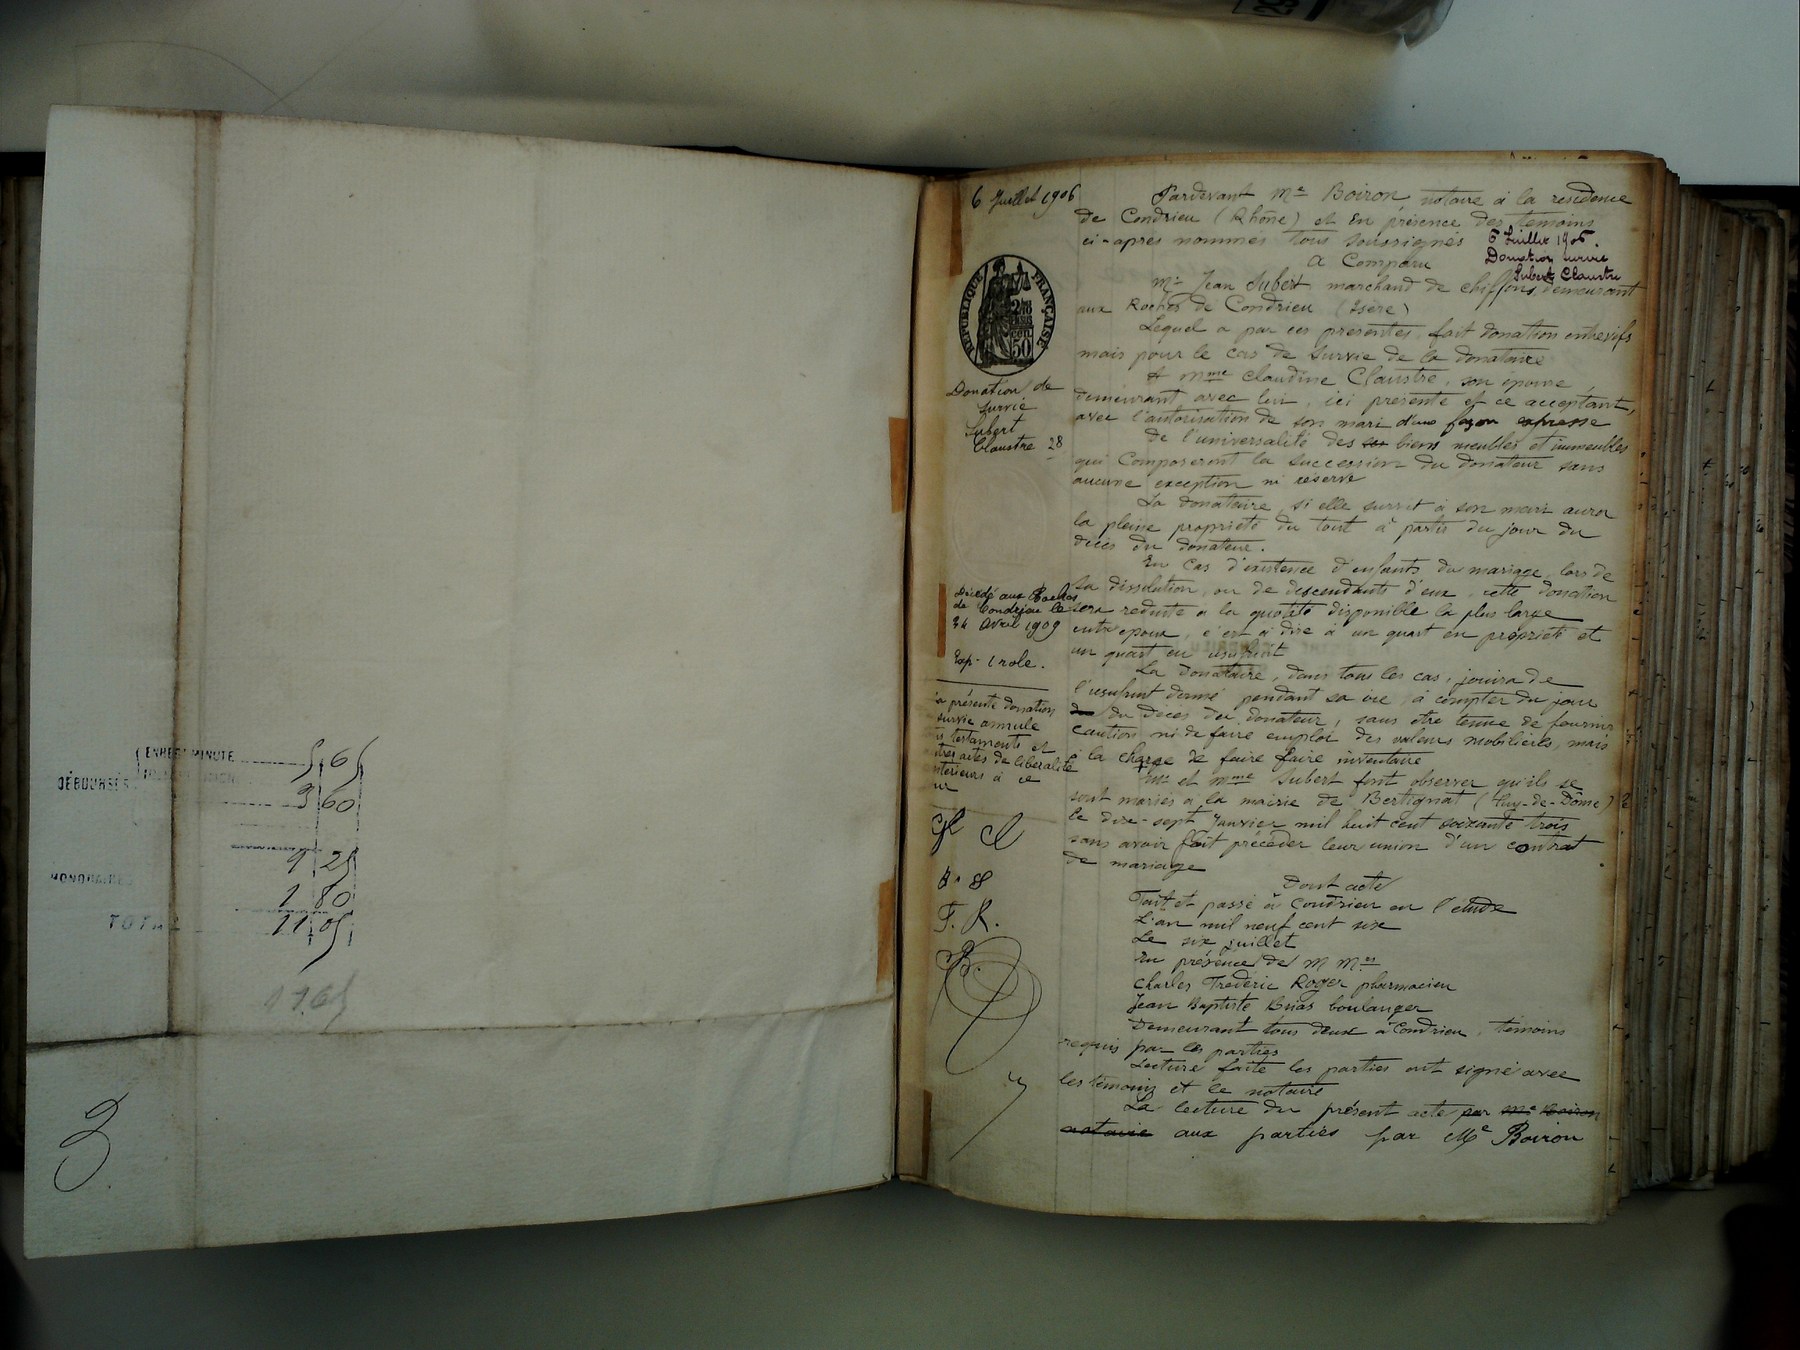 ENREG MINUTE 5 65
DÉBOURSÉS
3 60
9 25
HONORAIRES
1 80
TOTAL 11 05
11.65
6 Juillet 1906
RÉPUBLIQUE FRANÇAISE
50
Donation de
survie
Subert
Claustre 28
Décédé aux Roches
de Condrieu le
24 Avril 1909
Exp. 1 role.
La présente donation
survie annule
testaments et
autres actes de libéralité
antérieurs à ce
jour
F. R.
B.
Pardevant Me Boiron notaire à la résidence
de Condrieu (Rhône) et en présence des témoins
ci-après nommés tous soussignés
6 Juillet 1906.
Donation survie
Subert Claustre
A Comparu
Mr Jean Subert marchand de chiffons, demeurant
aux Roches de Condrieu (Isère)
Lequel a par ces présentes, fait donation entrevifs
mais pour le cas de survie de la donataire
A Mme Claudine Claustre, son épouse
demeurant avec lui, ici présente et ce acceptant,
avec l'autorisation de son mari d'une façon expresse
de l'universalité des ses biens meubles et immeubles
qui composeront la succession du donateur sans
aucune exception ni réserve
La donataire, si elle survit à son mari aura
la pleine propriété du tout à partir du jour du
décès du donateur.
En cas d'existence d'enfants du mariage, lors de
sa dissolution, ou de descendants d'eux, cette donation
sera réduite à la quotité disponible la plus large
entre époux, c'est à dire à un quart en propriété et
un quart en usufruit
La donataire, dans tous les cas, jouira de
l'usufruit donné pendant sa vie, à compter du jour
du décès du donateur, sans être tenue de fournir
caution ni de faire emploi des valeurs mobilières, mais
à la charge de faire faire inventaire
Mr et Mme Subert font observer qu'ils se
sont mariés à la mairie de Bertignat (Puy-de-Dôme)
le dix-sept Janvier mil huit cent soixante trois
sans avoir fait précéder leur union d'un contrat
de mariage
Dont acte
Fait et passé à Condrieu en l'étude
L'an mil neuf cent six
Le six juillet
En présence de M Mrs
Charles Frédéric Roger pharmacien
Jean Baptiste Brias boulanger
Demeurant tous deux à Condrieu, témoins
requis par les parties
Lecture faite les parties ont signé avec
les témoins et le notaire
La lecture du présent acte par Me Boiron
notaire aux parties par Me Boiron